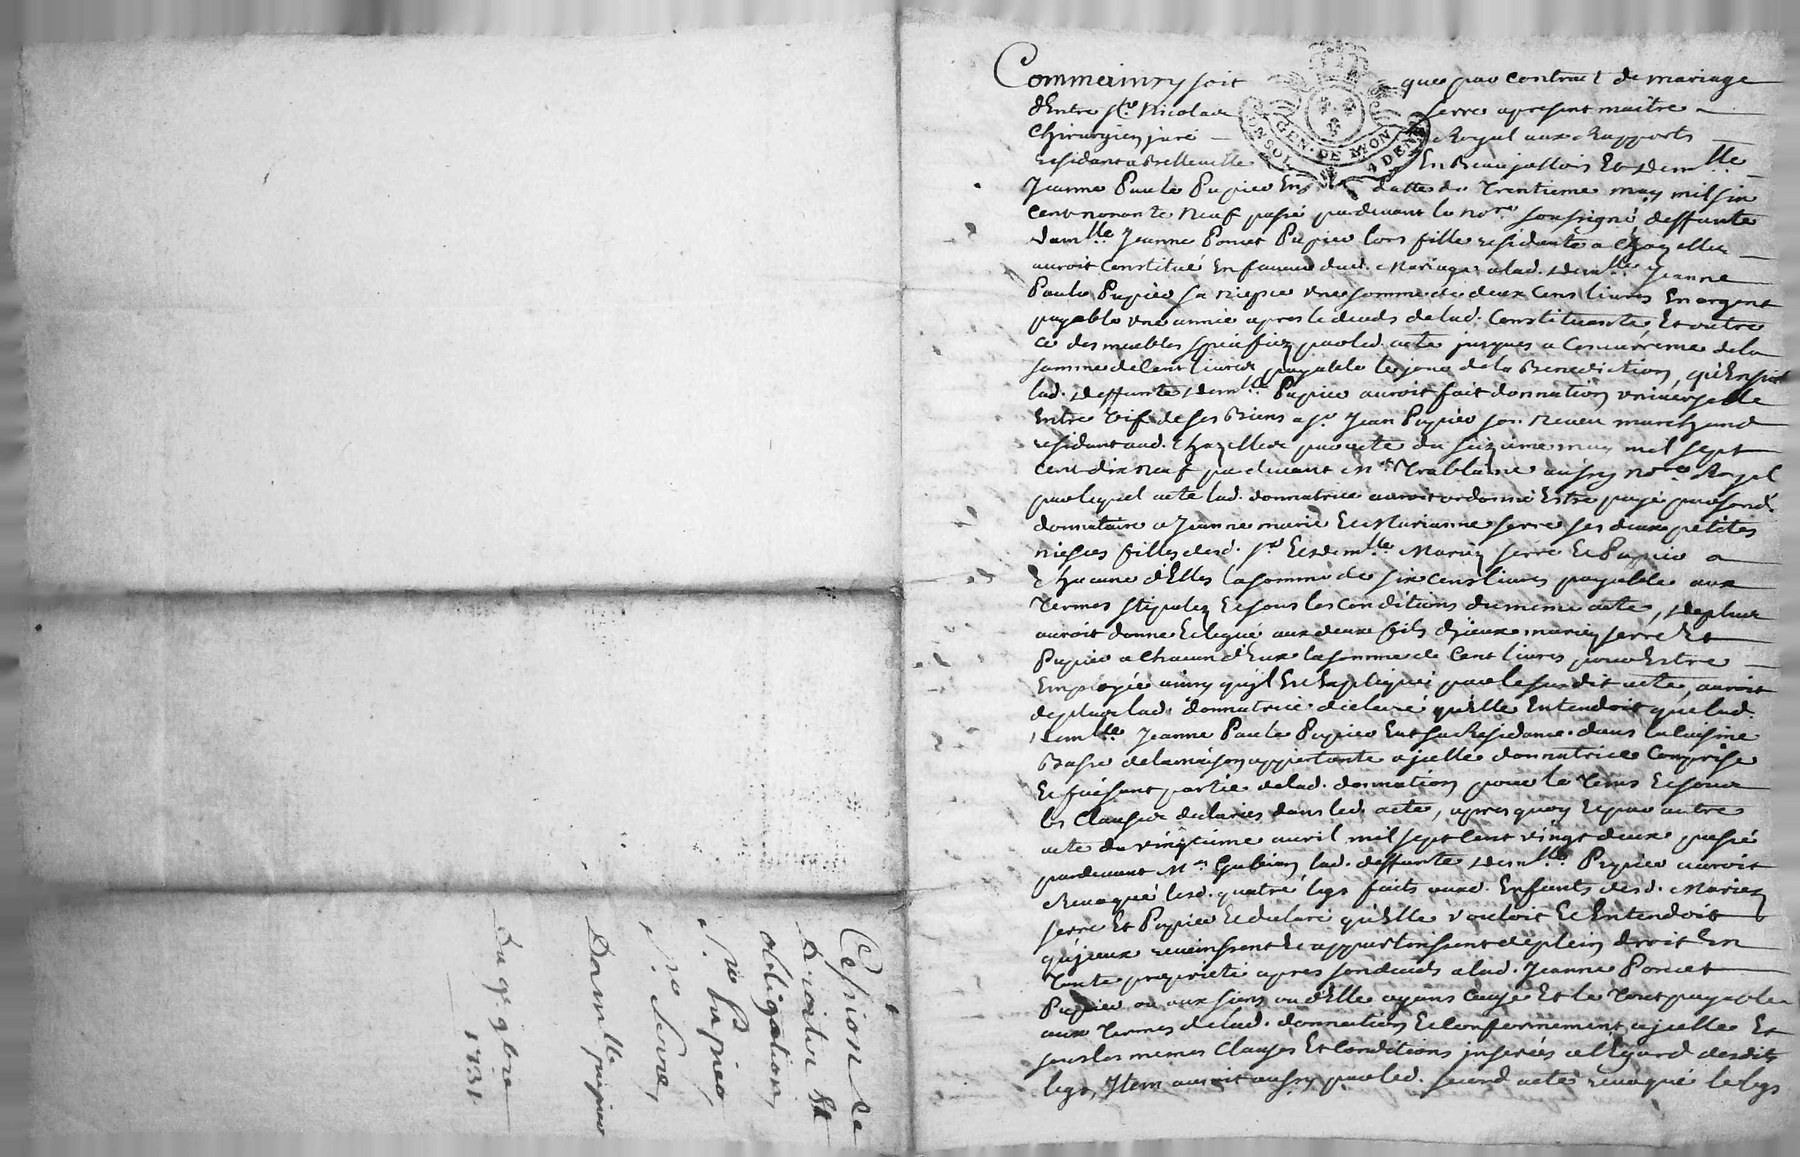 Commeainsy soit que par contract de mariage
d'Entre Sr. Nicolas Serre apresent maitre
Chirurgien juré Royal aux Rapports
residant a Belleville En Beaujollois Et demlle.
Jeanne Paule Papier En datte du Trentieme may mil six
cent nonante Neuf passé pardevant le Nore. soussigné deffunte
damlle. Jeanne Poncet Papier lors fille residante a Chazelles
auroit Constitué En faveur dud. Mariage a lad. demlle. Jeanne
Paule Papier sa Niepce Une somme de deux Cens livres En argent
payable Une année apres le deceds de lad. Constituante Et outre
ce des meubles speciffiez par led. acte jusques a Concurrence de la
somme de Cent livres payable le jour de la Benediction, qu'Ensuite
lad. deffunte demlle. Papier auroit fait donnation universelle
Entre Vifs de ses Biens a Sr. Jean Papier son Neveu marchand
residant aud. Chazelles par acte du seizieme may mil sept
Cent dix Neuf pardevant Me. aussy Nore. Royal
par lequel acte lad. donnatrice auroit ordonné Estre payé par sond.
donnataire a Jeanne marie Et Marianne Serre ses deux petites
niepces filles desd. Sr. Et demlle. Mariez Serre Et Papier a
Chacune d'Elles la somme de six cens livres payable aux
Termes stipulez Et sous les conditions du meme acte, de plus
auroit donné Et legué aux deux fils d'jceux mariez Serre Et
Papier a Chacun d'Eux la somme de Cent livres pour Estre
Employée ainsy qu'il Est Expliqué par le susdit acte, auroit
de plus lad. donnatrice declaré qu'Elle Entendoit que lad.
demlle. Jeanne Paule Papier Eut sa Residance dans la Cuisine
Basse de la maison appartenante a jcelle donnatrice Comprise
Et faisant partie de lad. donnation pour le Tems Et sous
les Clauses declarées dans led. acte, apres quoy Et par autre
acte du vingtieme avril mil sept Cent vingt deux passé
pardevant Me. Gubian lad. deffunte demlle. Papier auroit
Revoqué lesd. quatre legs faits auxd. Enfants desd. Mariez
Serre Et Papier Et declaré qu'Elle vouloit Et Entendoit
qu'jceux revinssent Et appartinssent de plein droit En
Toute proprieté apres son deceds a lad. Jeanne Poncet
Papier ou aux siens ou d'Elle ayans Cause Et le Tout payable
aux Termes de lad. donnation Et Conformement a jcelle Et
sous les memes Clauses Et Conditions jnserées a l'Egard desdits
legs, Jtem auroit aussy par led. second acte revoqué le legs
Cession de
Droits Et
obligation,
Sr. Papier,
Sr. Serre,
Damlle papier
Du 9bre
1731